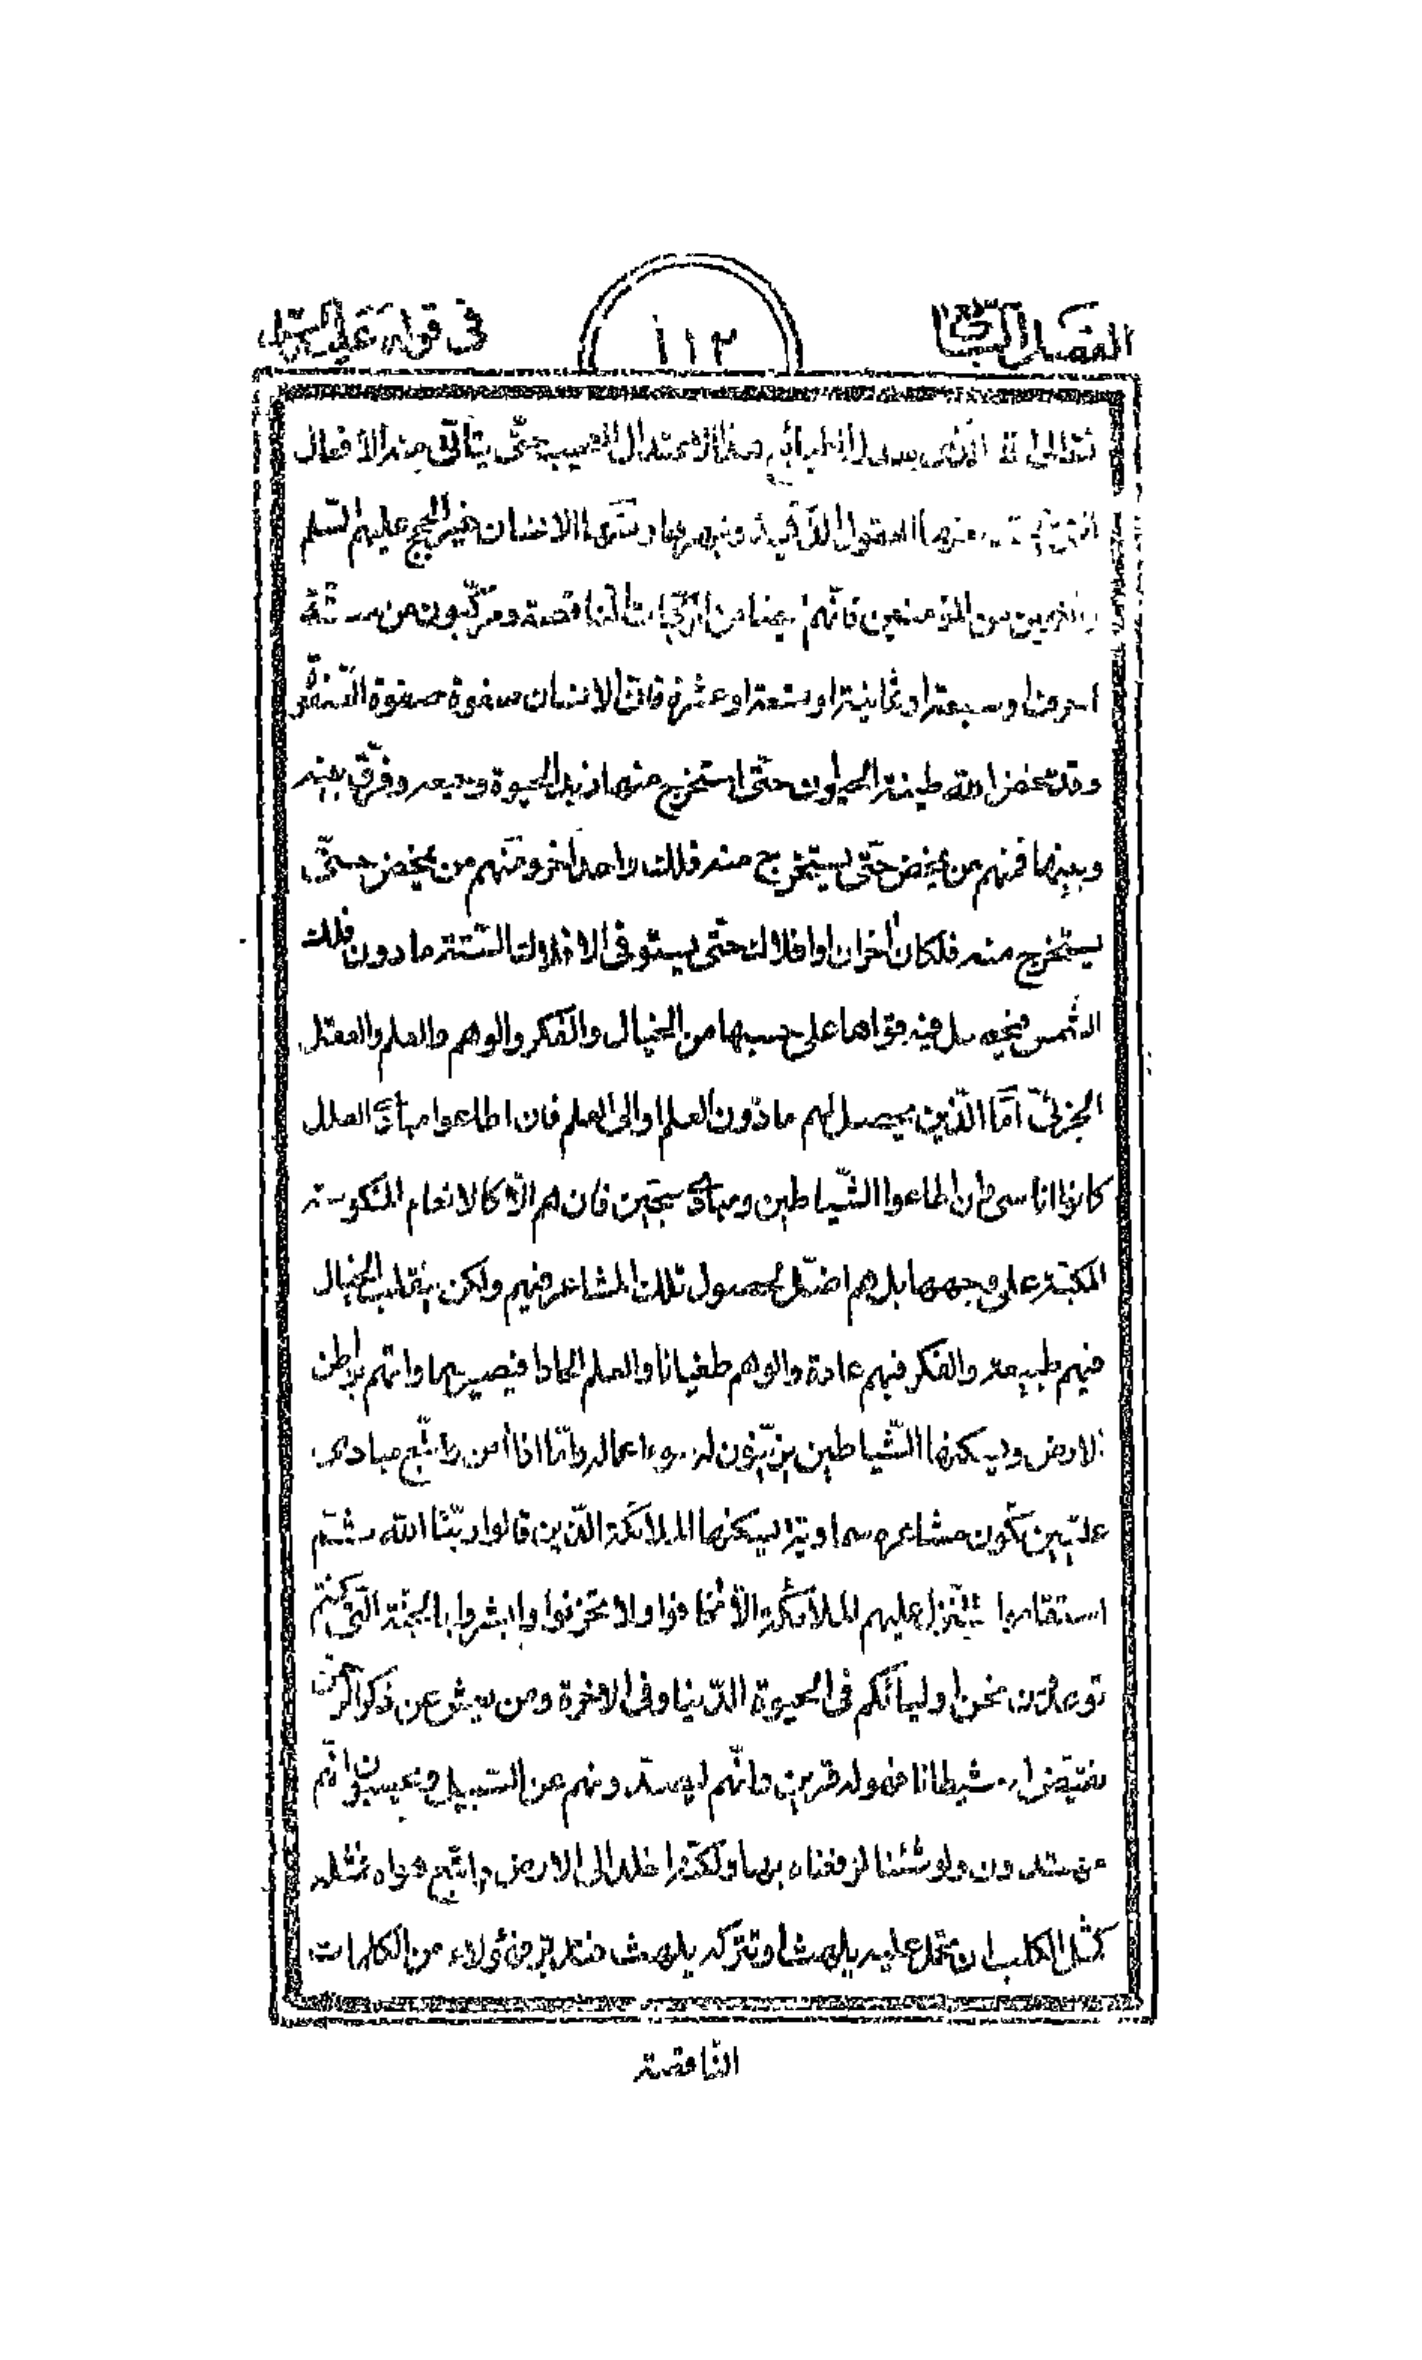 الفصل الرابع
١١٢
في قوله عليه السلام
هذا الاعتدال العجيب حتى يتأتى منه الافعال
العقول وغيرها الانسان غير الحجج عليهم السلم
من المؤمنين فانهم ايضا من الناقصة ومركبون من ستة
او سبعة او ثمانية او تسعة او عشرة فان الانسان صفوة صفوة
وقد مخض الله طينة الحيوان حتى استخرج منها زبد الحيوة وفرق بينه
وبينها فمنهم من يمخض حتى يستخرج منه فلك واحد اخر ومنهم من يمخض حتى
يستخرج منه فلكان اخران او افلاك حتى يستوفى الافلاك الستة ما دون فلك
الشمس فيحصل فيه قواها على حسبها من الخيال والفكر والوهم والعلم والعقل
الجزئى اما الذين يحصل لهم ما دون العلم او الى العلم فان اطاعوا مبادى العلل
كانوا اناسى وان اطاعوا الشياطين ومبادى سجين فان هم الا كالانعام المنكوسة
المكبة على وجهها بل هم اضل لحصول تلك المشاعر فيهم ولكن ينقلب الخيال
فيهم طبيعة والفكر فيهم عادة والوهم طغيانا والعلم الحادا فيصير سماواتهم بواطن
الارض ويسكنها الشياطين يزينون له سوء اعماله واما اذا امن واتبع مبادى
عليين تكون مشاعره سماوية يسكنها الملائكة الذين قالوا ربنا الله ثم
استقاموا تتنزل عليهم الملائكة الا تخافوا ولا تحزنوا وابشروا بالجنة التى كنتم
توعدون نحن اولياؤكم فى الحيوة الدنيا وفى الاخرة ومن يعش عن ذكر الرحمن
نقيض له شيطانا فهو له قرين وانهم ليصدونهم عن السبيل ويحسبون انهم
مهتدون ولو شئنا لرفعناه بها ولكنه اخلد الى الارض واتبع هواه فمثله
كمثل الكلب ان تحمل عليه يلهث او تتركه يلهث فهؤلاء من الكلمات
الناقصة